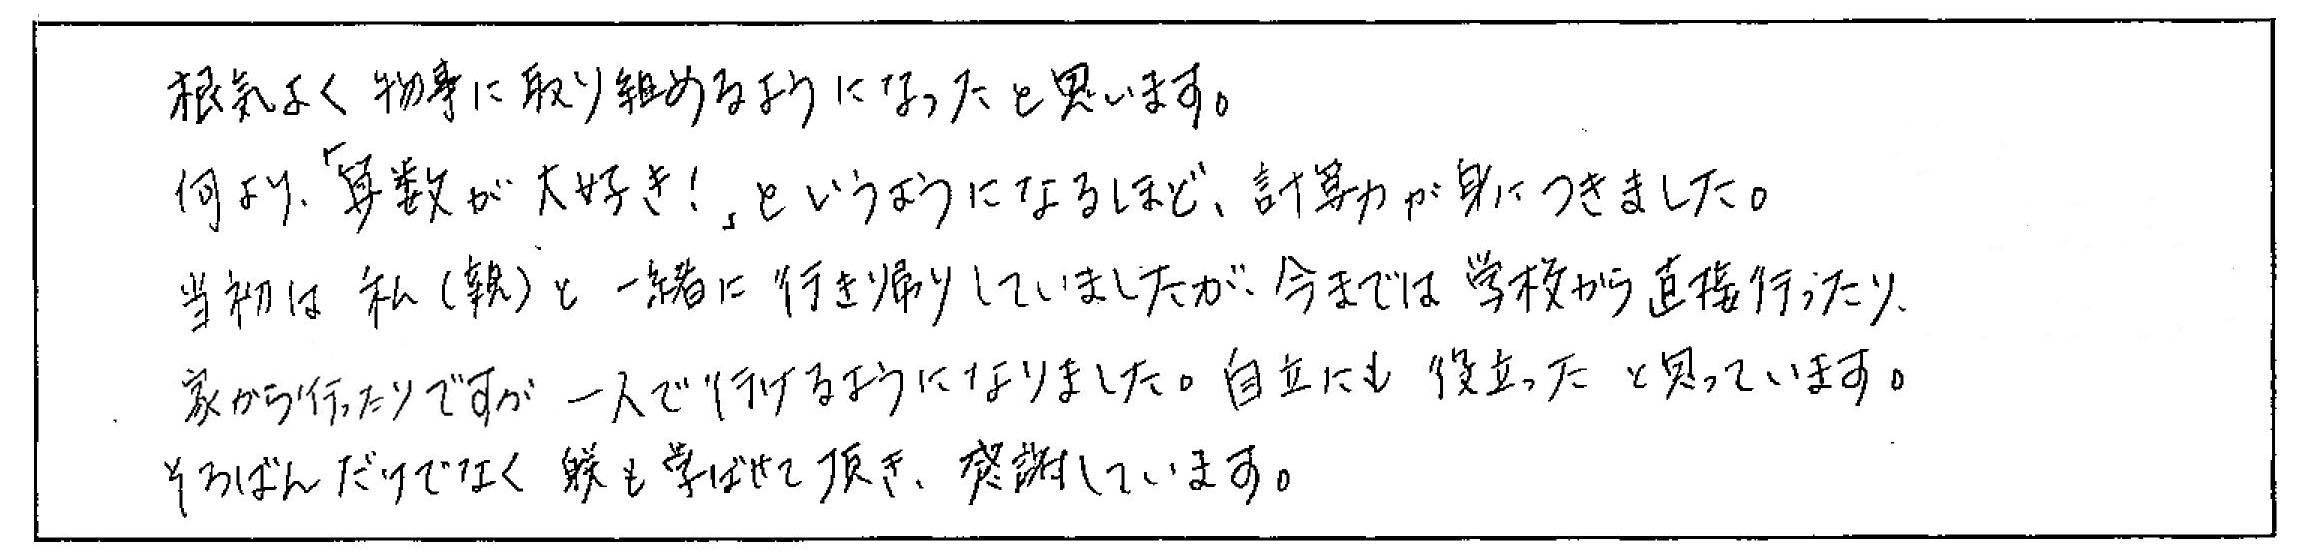 根気よく物事に取り組めるようになったと思います。
何より、「算数が大好き!」というようになるほど、計算力が身につきました。
当初は私(親)と一緒に行き帰りしていましたが、今までは学校から直接行ったり、
家から行ったりですが一人で行けるようになりました。自立にも役立ったと思っています。
そろばんだけでなく躾も学ばせて頂き、感謝しています。